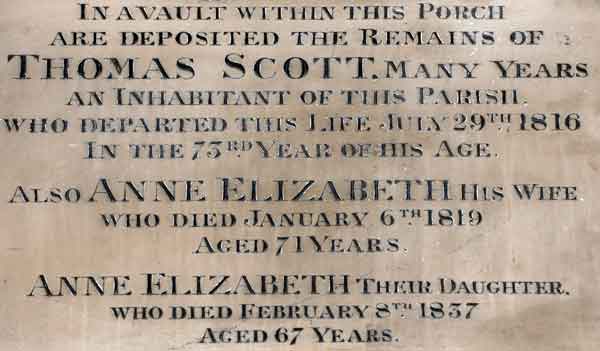 IN A VAULT WITHIN THIS PORCH
ARE DEPOSITED THE REMAINS OF
THOMAS SCOTT, MANY YEARS
AN INHABITANT OF THIS PARISH.
WHO DEPARTED THIS LIFE JULY 29TH 1816
IN THE 73RD YEAR OF HIS AGE.
ALSO ANNE ELIZABETH HIS WIFE
WHO DIED JANUARY 6TH 1819
AGED 71 YEARS.
ANNE ELIZABETH THEIR DAUGHTER,
WHO DIED FEBRUARY 8TH 1837
AGED 67 YEARS.